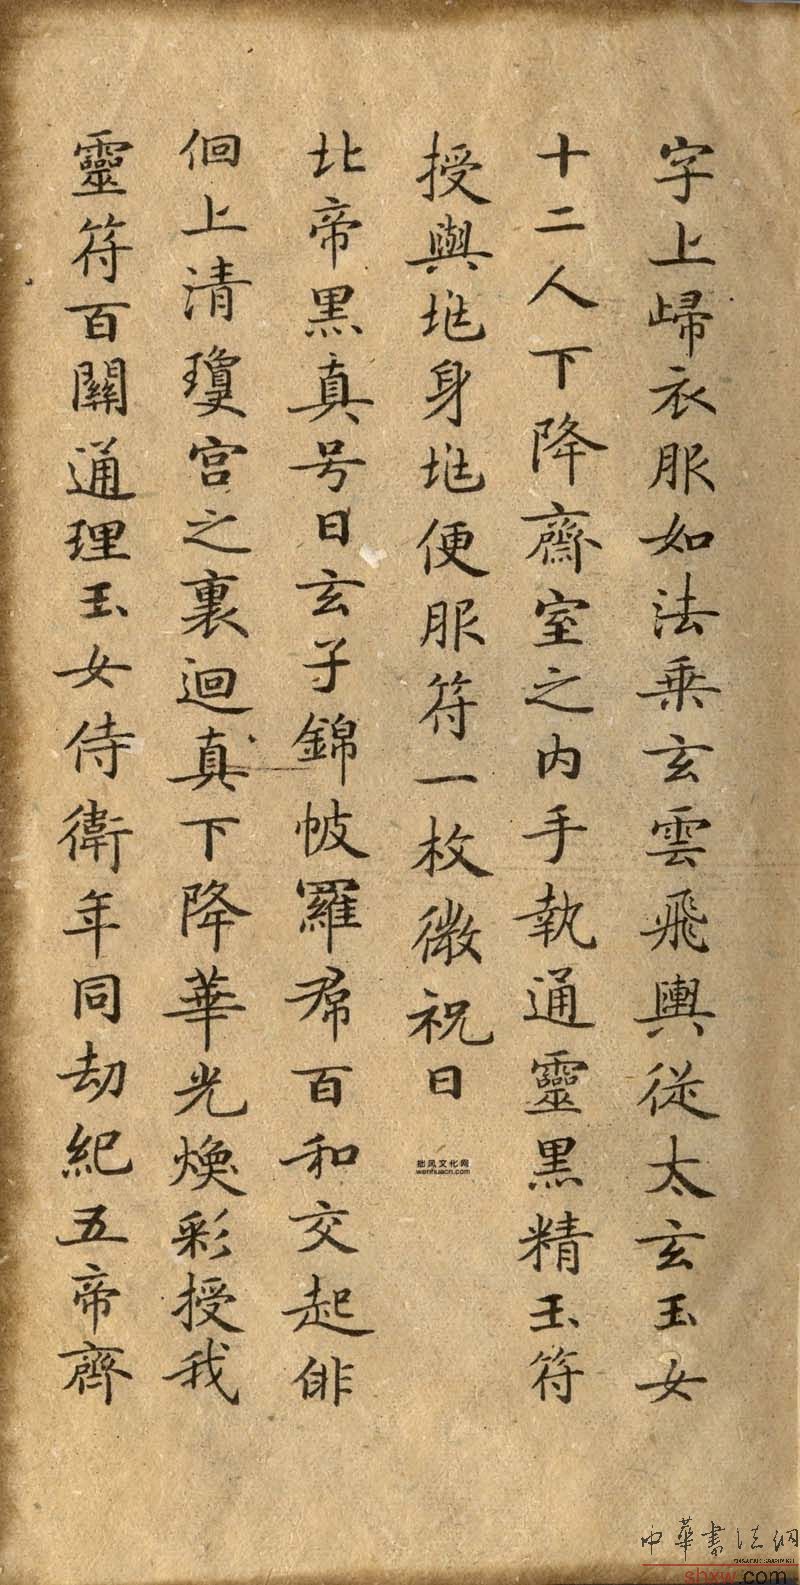 字上歸衣服如法乘玄雲飛輿從太玄玉女
十二人下降齋室之内手執通靈黑精玉符
授與兆身兆便服符一枚微祝曰
北帝黑真号曰玄子錦帔羅帬百和交起俳
佪上清瓊宫之裏迴真下降華光煥彩授我
靈符百關通理玉女侍衛年同劫紀五帝齊
拙风文化网
wenhuacn.com
中華書法網
shxw.com